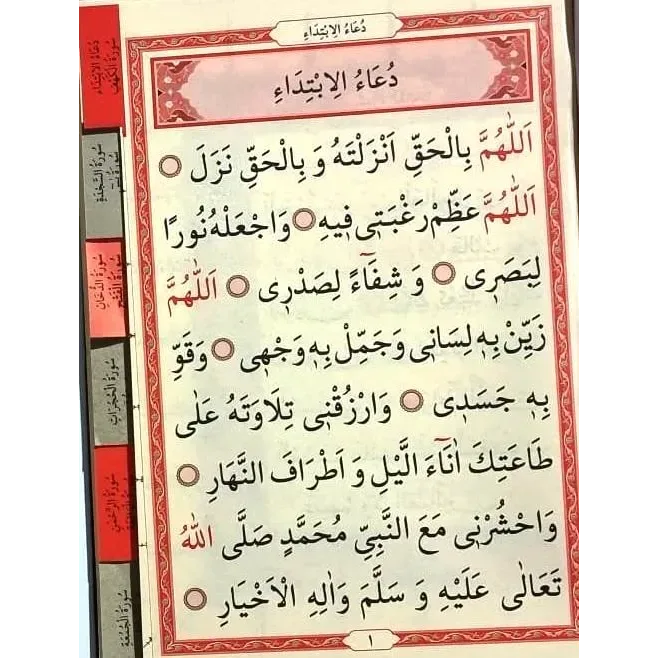 دُعَاءُ الِابْتِدَاءِ
دُعَاءُ الِابْتِدَاءِ
اَللّٰهُمَّ بِالْحَقِّ اَنْزَلْتَهُ وَ بِالْحَقِّ نَزَلَ
اَللّٰهُمَّ عَظِّمْ رَغْبَتٖى فٖيهِ وَاجْعَلْهُ نُورًا
لِبَصَرٖى وَ شِفَٓاءً لِصَدْرٖى اَللّٰهُمَّ
زَيِّنْ بِهٖ لِسَانٖى وَجَمِّلْ بِهٖ وَجْهٖى وَقَوِّ
بِهٖ جَسَدٖى وَارْزُقْنٖى تِلَاوَتَهُ عَلٰى
طَاعَتِكَ اٰنَٓاءَ الَّيْلِ وَ اَطْرَافَ النَّهَارِ
وَاحْشُرْنٖى مَعَ النَّبِيِّ مُحَمَّدٍ صَلَّى اللّٰهُ
تَعَالٰى عَلَيْهِ وَ سَلَّمَ وَاٰلِهِ الْاَخْيَارِ
١
دُعَاءُ الِابْتِدَاءِ
سُورَةُ الْكَهْفِ
سُورَةُ السَّجْدَةِ
سُورَةُ الدُّخَانِ
سُورَةُ الْفَتْحِ
سُورَةُ الْحُجُرَاتِ
سُورَةُ الرَّحْمٰنِ
سُورَةُ الْجُمُعَةِ